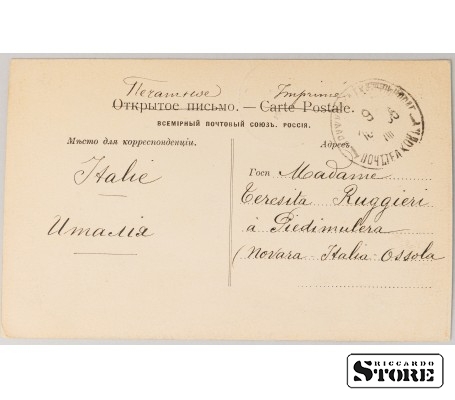 Печатное Imprimé
Открытое письмо. — Carte Postale.
ВСЕМІРНЫЙ ПОЧТОВЫЙ СОЮЗЪ. РОССІЯ.
Мѣсто для корреспонденціи.
Italie
Италія
Адресъ
Госп Madame
Teresita Ruggieri
à Piedimulera
(Novara Italia Ossola
RICCARDO
STORE